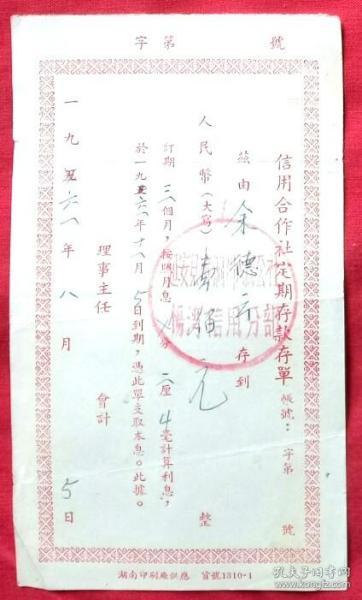 字第 號
信用合作社定期存款存單 帳號：字第 號
茲由 余德元 存到
人民幣（大寫）壹拾元 整
訂期三個月，按照月息 分二厘4毫計算利息，
於一九六一年十一月5日到期，憑此單支取本息。此據。
理事主任 會計
一九六一年八月5日
湖南印刷廠供應 貨號1310-1
孔夫子旧书网